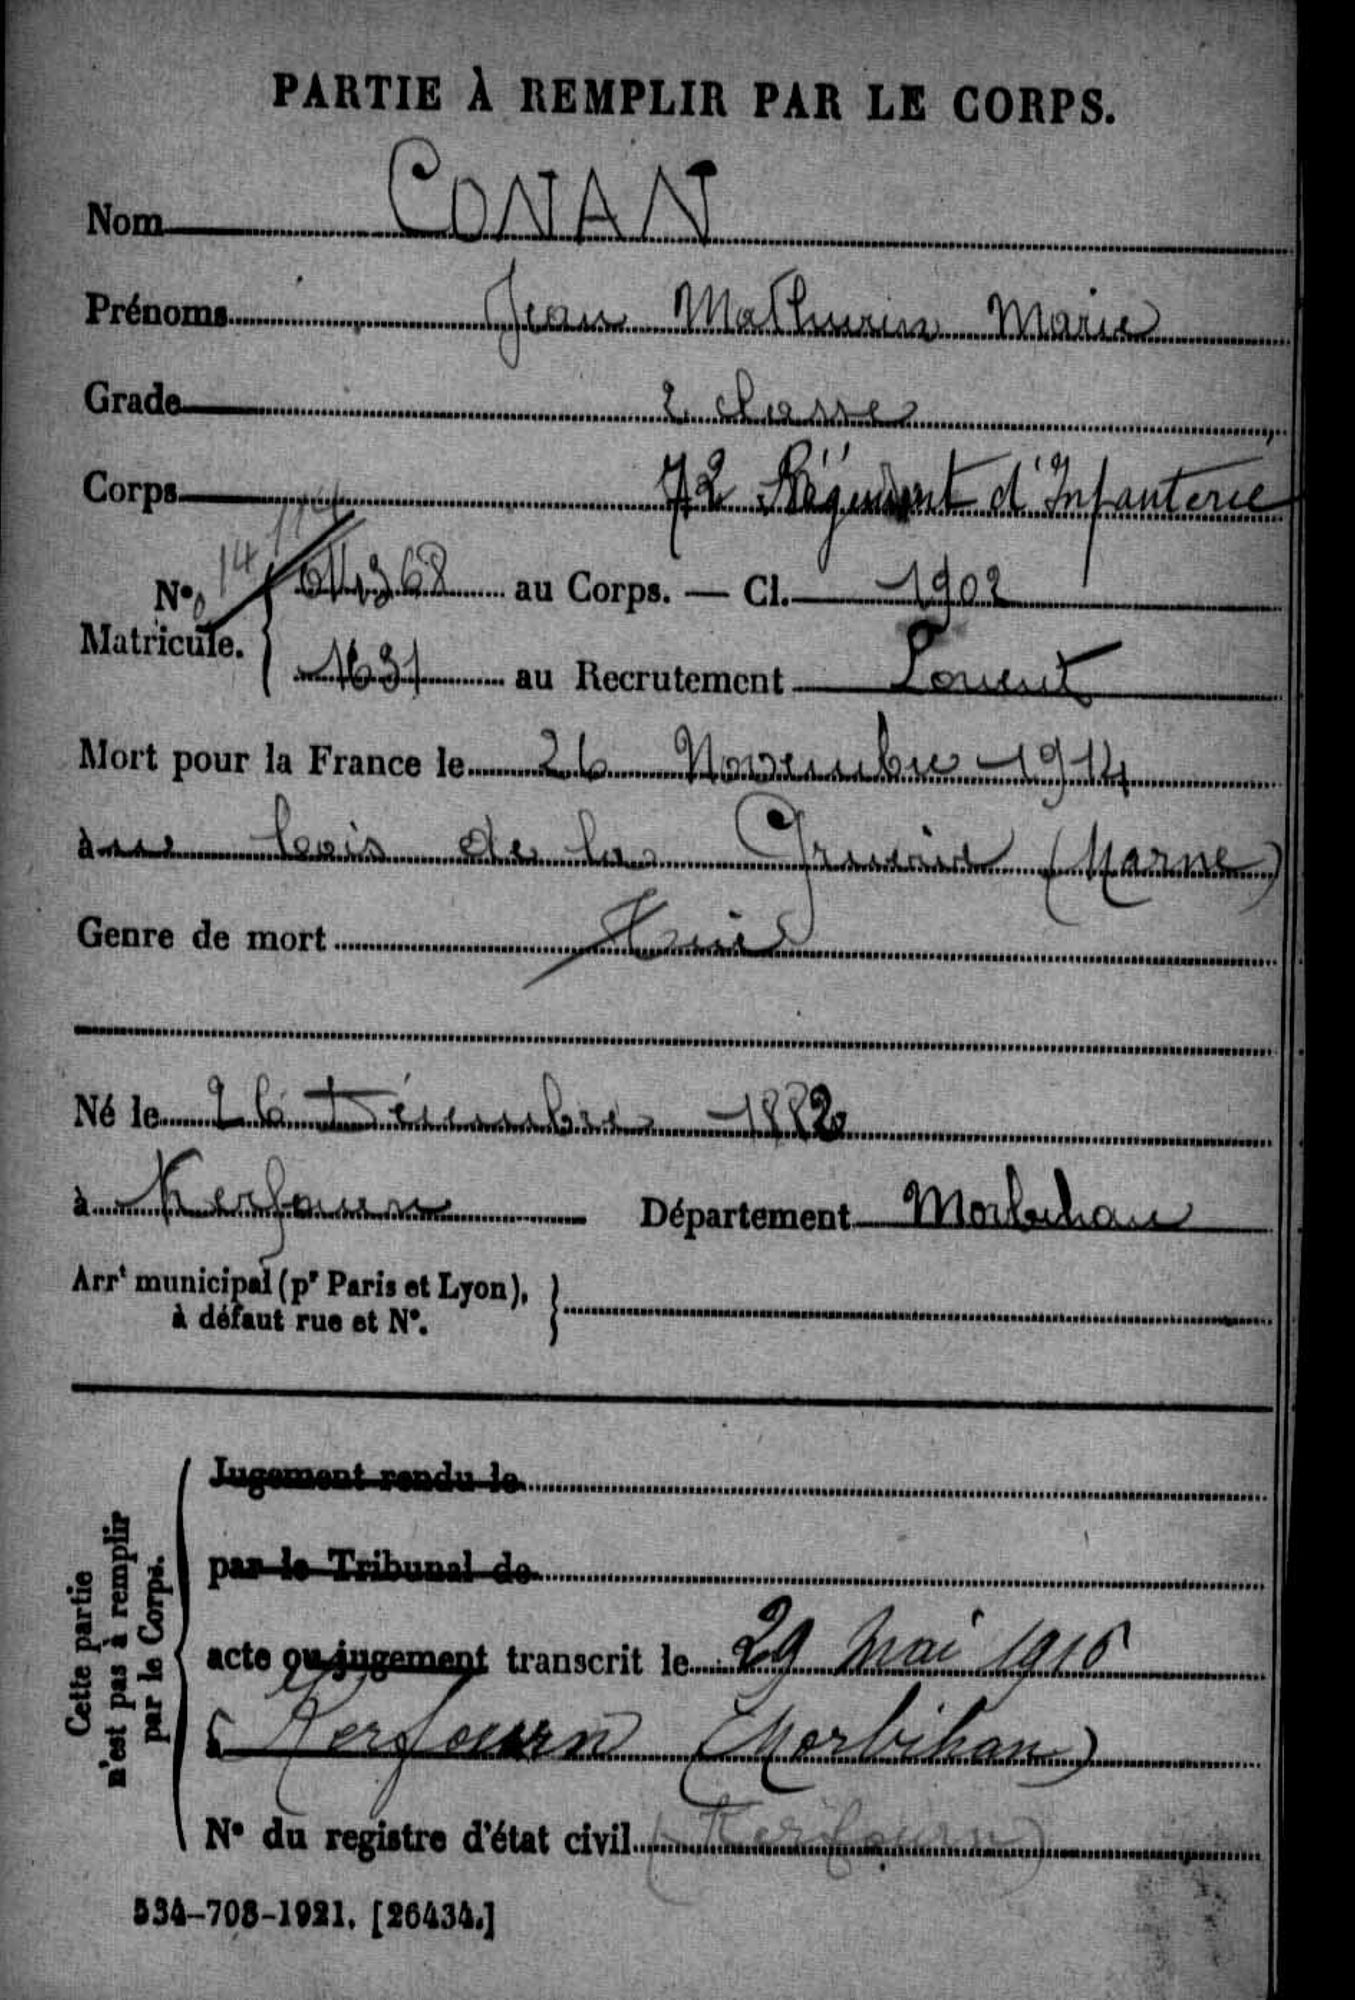 PARTIE À REMPLIR PAR LE CORPS.
Nom CONAN
Prénoms Jean Mathurin Marie
Grade 2 classe
Corps 72 Régiment d'Infanterie
N° 011368 au Corps. — Cl. 1902
Matricule.
1631 au Recrutement Lorient
Mort pour la France le 26 Novembre 1914
au bois de la Grurie (Marne)
Genre de mort Tué
Né le 26 Décembre 1882
à Kerfourn Département Morbihan
Arrt municipal (pr Paris et Lyon),
à défaut rue et N°.
Cette partie
n'est pas à remplir
par le Corps.
Jugement rendu le
par le Tribunal de
acte ou jugement transcrit le 29 Mai 1915
à Kerfourn (Morbihan)
N° du registre d'état civil (Kerfourn)
534-708-1921. [26434.]